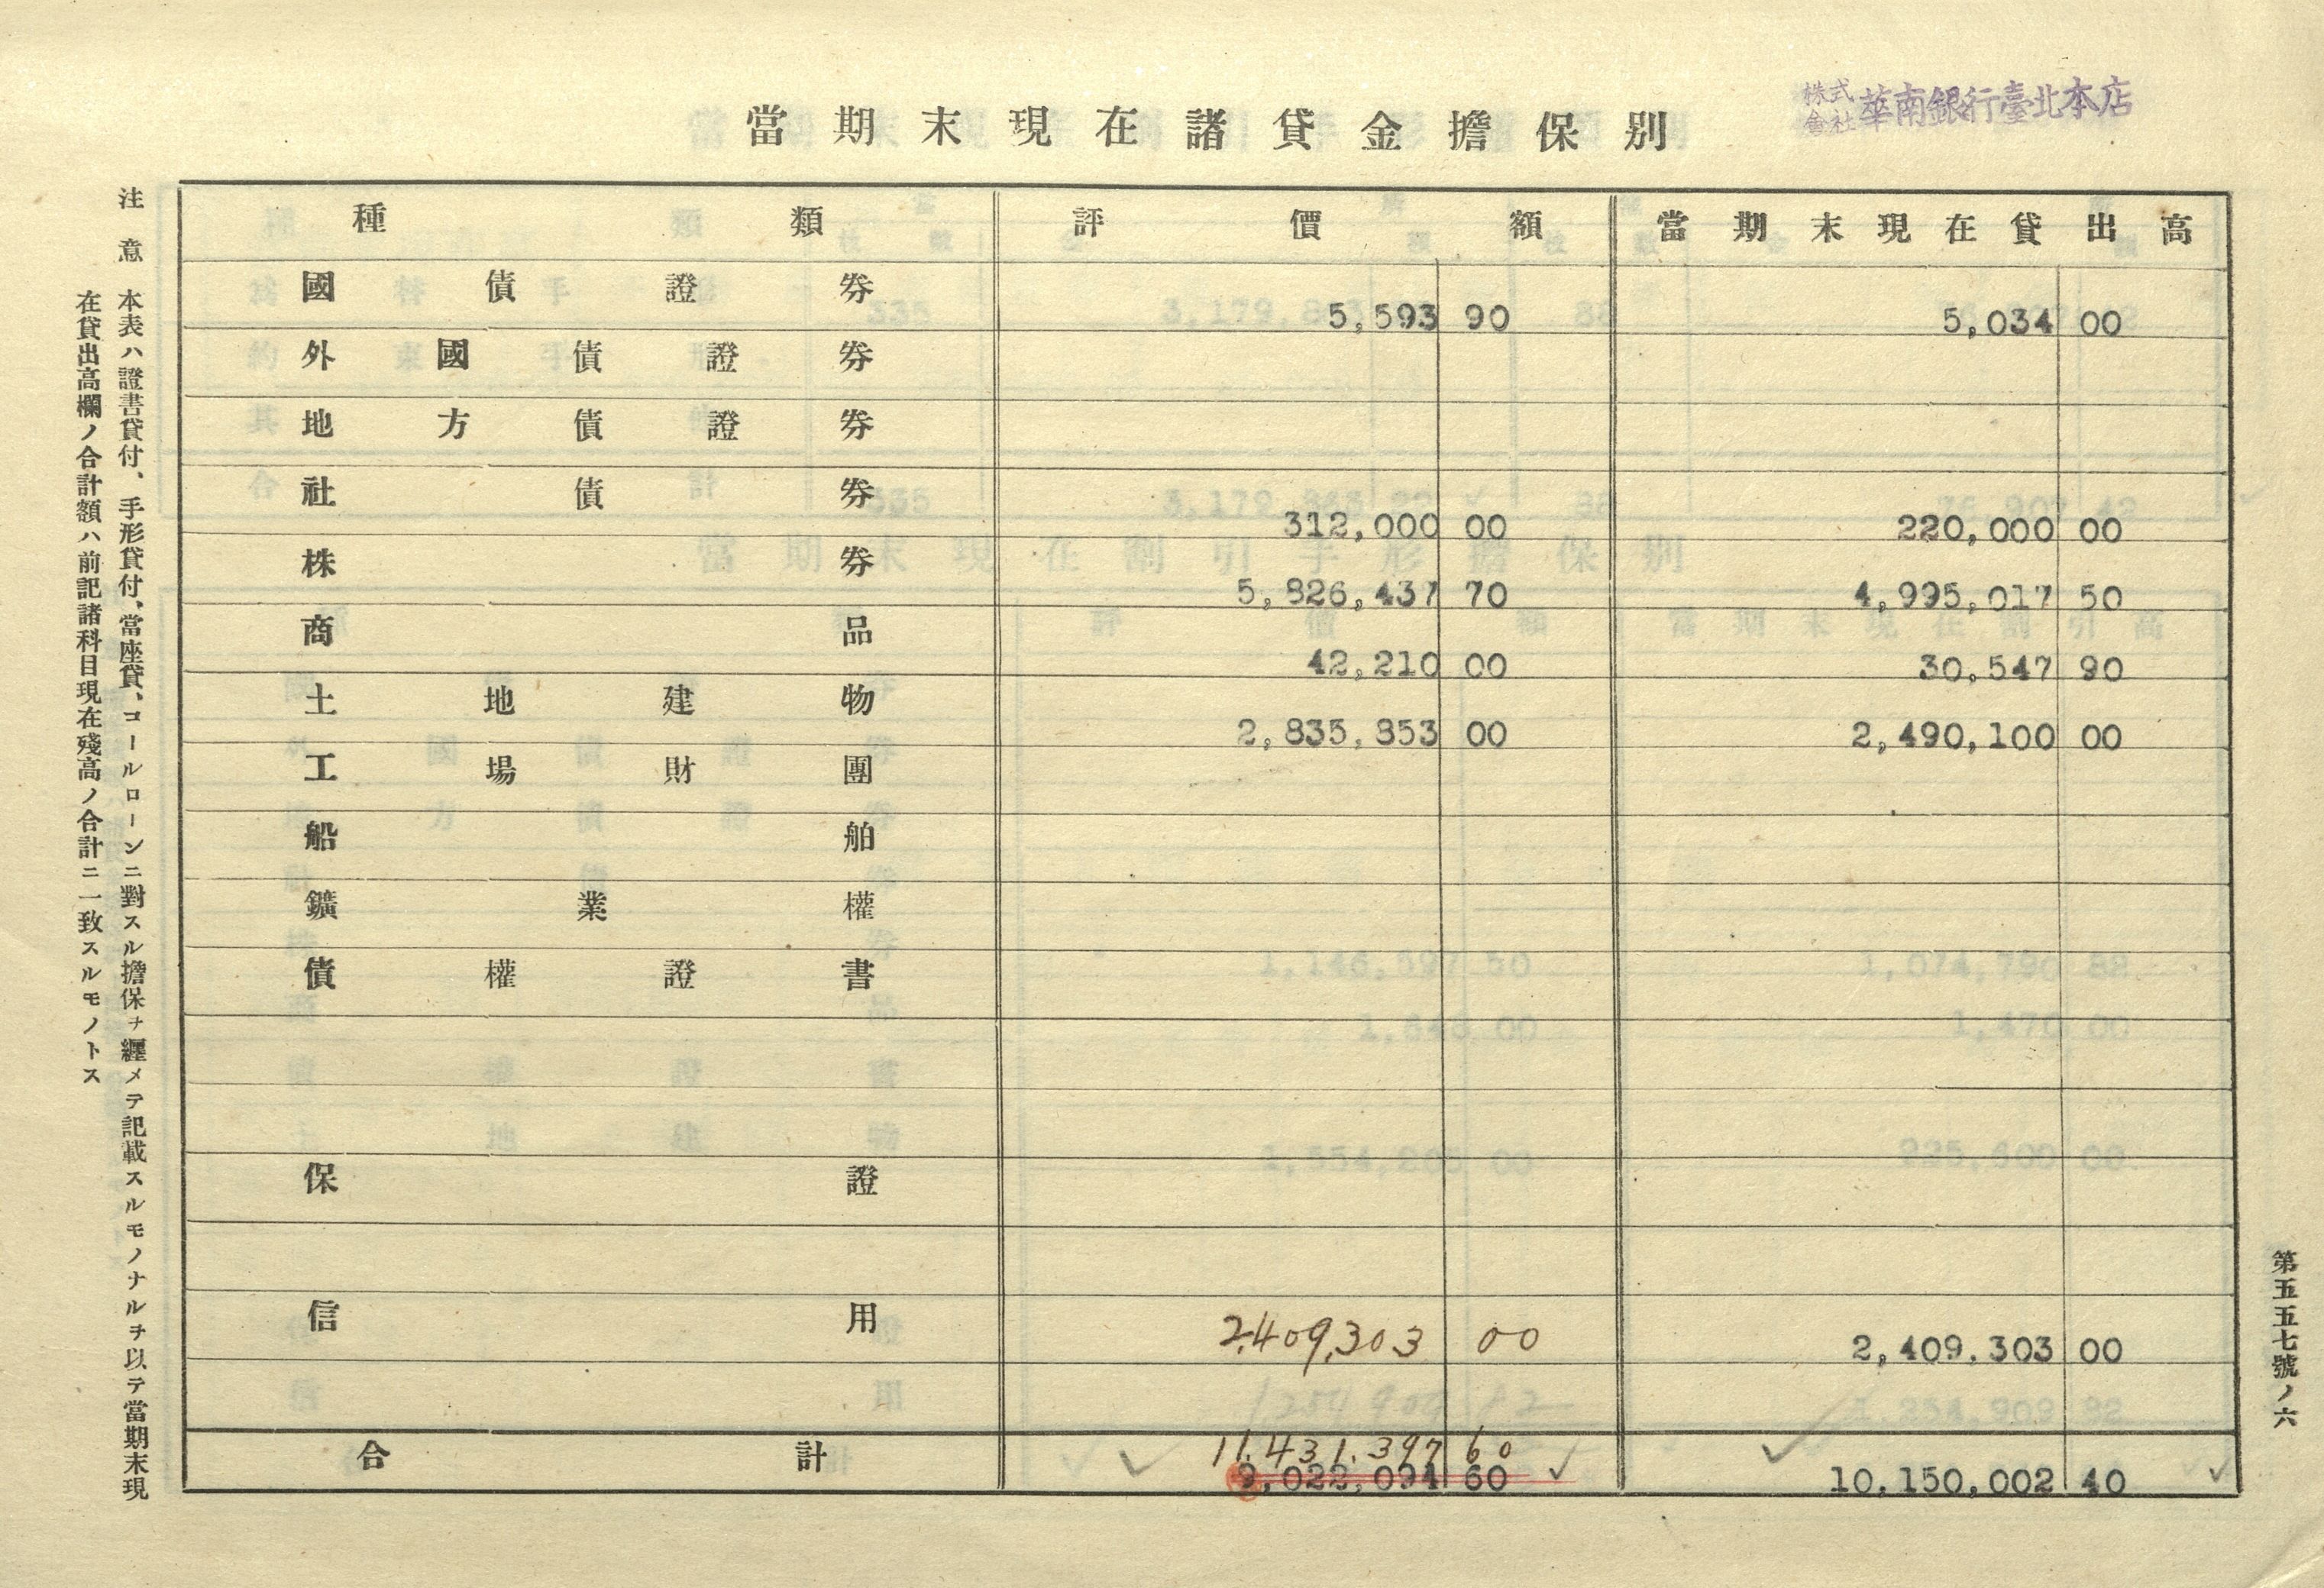 當期末現在諸貸金擔保別
株式會社 華南銀行臺北本店
種類 評價額 當期末現在貸出高
國債證券 5,593 90 5,034 00
外國債證券
地方債證券
社債券 312,000 00 220,000 00
株券 5,826,437 70 4,995,017 50
商品 42,210 00 30,547 90
土地建物 2,835,853 00 2,490,100 00
工場財團
船舶
鑛業權
債權證書
保證
信用 2,409,303 00 2,409,303 00
合計 11,431,397 60 10,150,002 40
9,022,094 60
注意 本表ハ證書貸付、手形貸付、當座貸、コールローンニ對スル擔保ヲ纒メテ記載スルモノナルヲ以テ當期末現
在貸出高欄ノ合計額ハ前記諸科目現在殘高ノ合計ニ一致スルモノトス
第五五七號ノ六